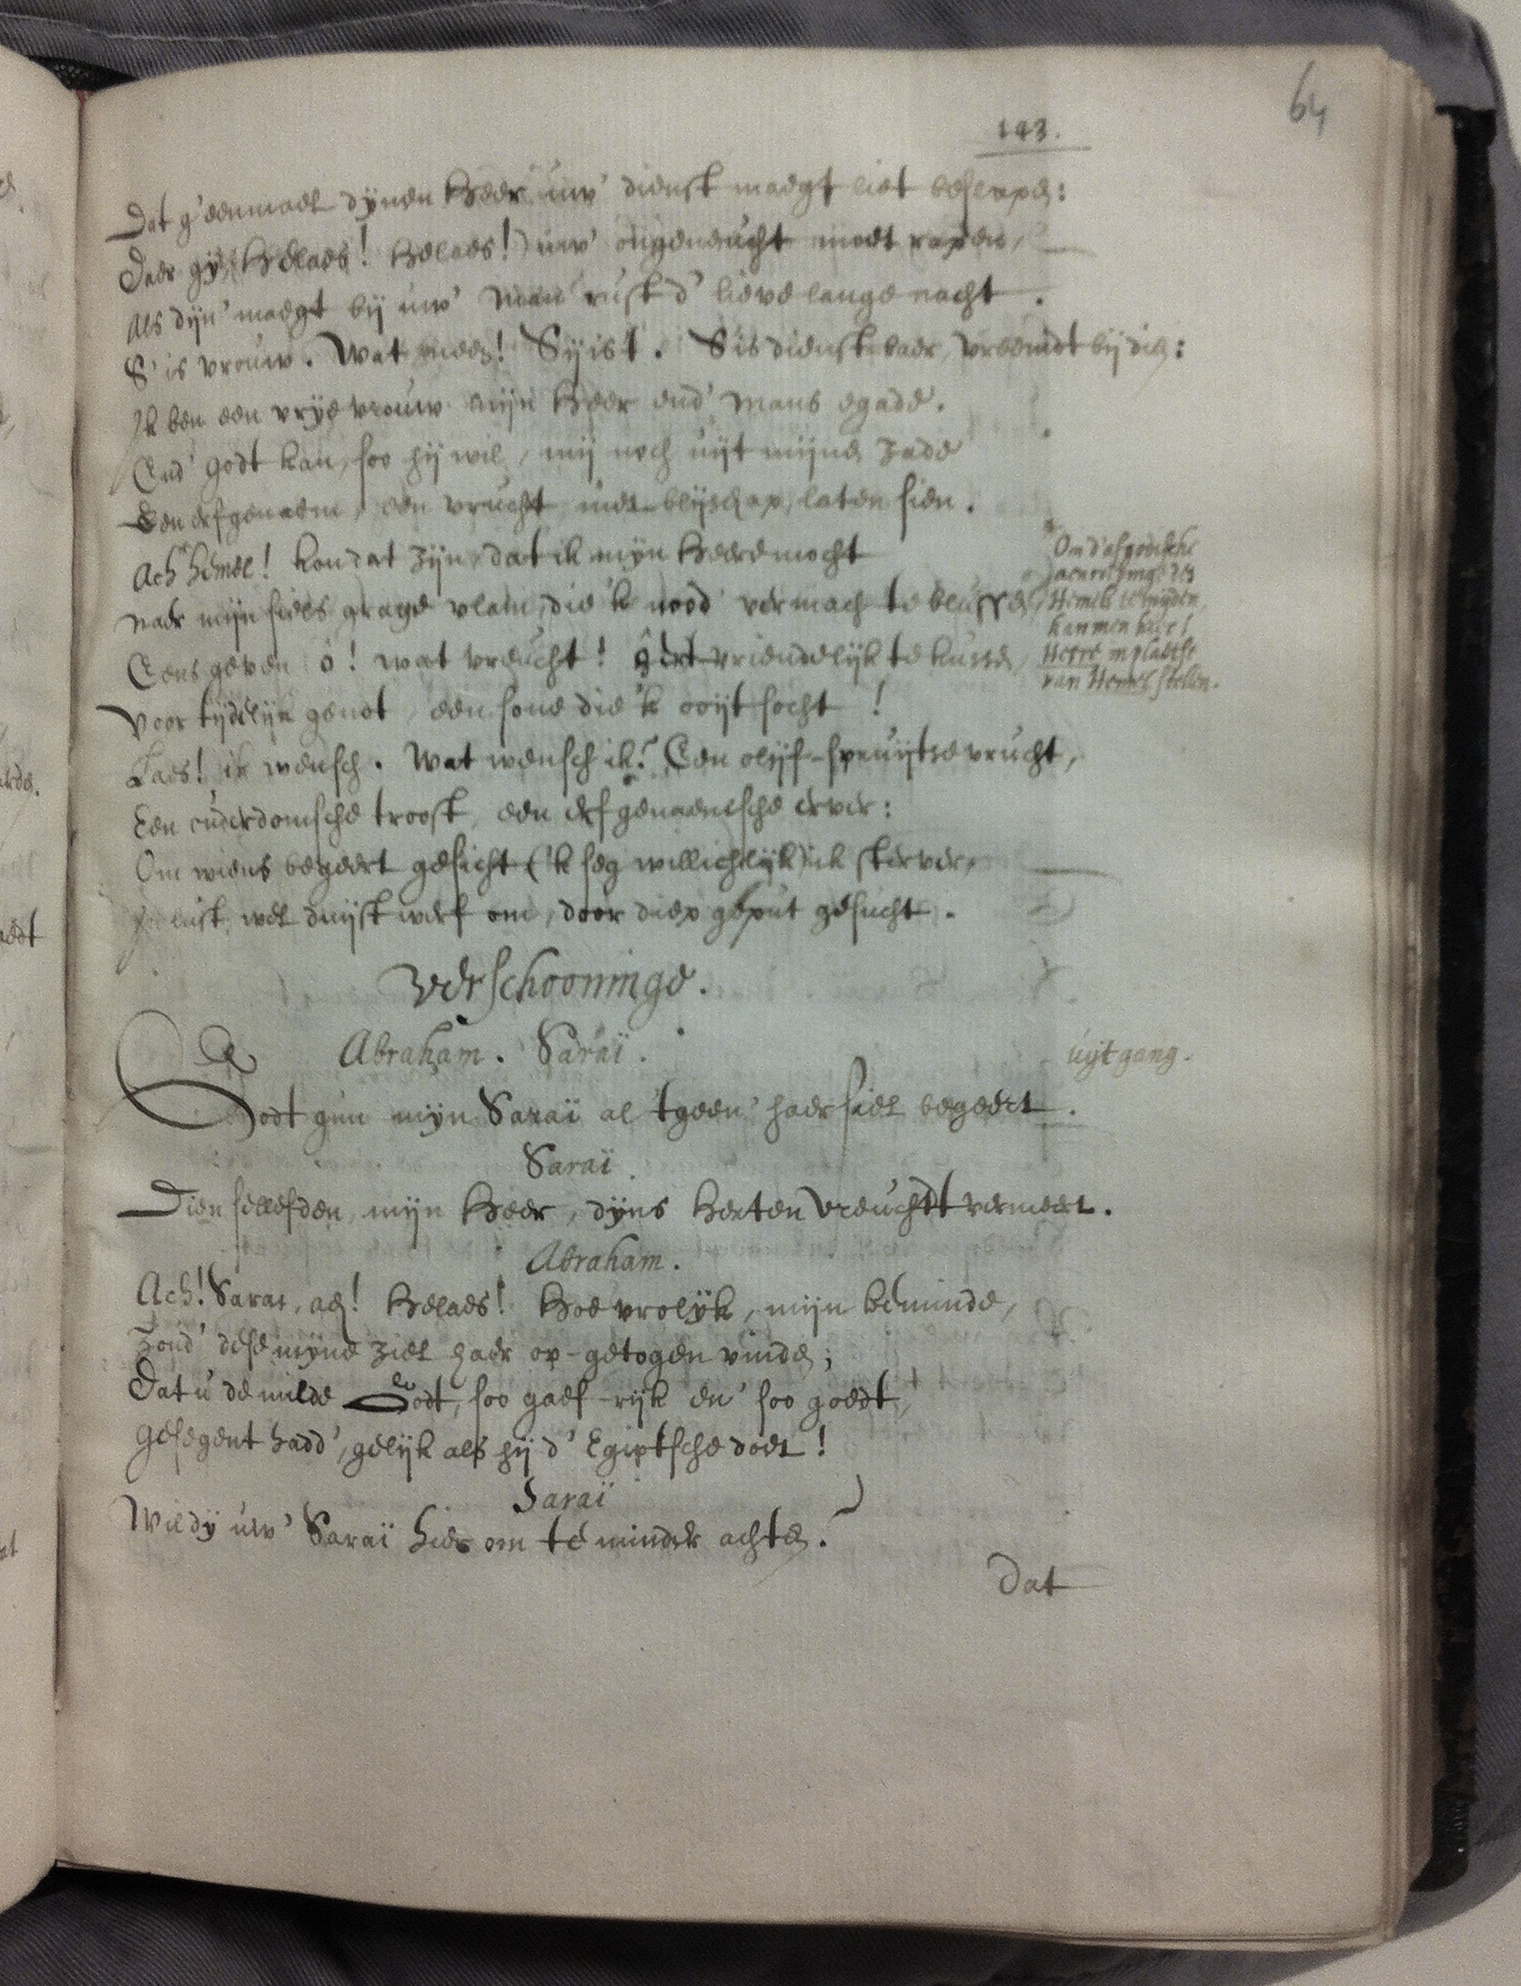 64
143.
Dat g'eenmael dynen Heer uw' dienst maegt liet beslapen:
Daer gy (Helaes! Helaes!) uw' ongeneucht moet rapen,
Als dyn' maegt bij uw' Man rust d' lieve lange nacht.
S' is vrouw. Wat neen! Sy ist. S is dienstbaer, vreemdt bij dien:
Ik ben een vrye vrouw mijn Heer end' Mans egade.
End' Godt kan, soo hij wil, mij noch uijt mijnen zade
Een erfgenaem, een vrucht, met blijschap, laten sien.
Ach Hemel! kon dat zijn, dat ik mijn Heere mocht
naer mijn siels grage vlam, die 'k nood vermach te blussen,
Eens geven ô! wat vreucht! vriendelijk te kussen,
Voor tydelijk genot, een sone die 'k ooijt socht!
Laes! ik wensch. Wat wensch ik? Een olijf-spruijtse vrucht,
Een ouderdomsche troost, een erfgenaemsche erver:
Om wiens begeert gesicht ('k seg willichlijk) ik sterver,
Ja lust wel duijst werf om, door diep geput gesucht.
Om d'afgodische
Hemels te myden,
kan men hier
Heere in plaetse
van Hemel stellen.
Verschooninge.
Abraham. Saraï.
uytgang.
Godt gun mijn Saraï al 'tgeen' haer siel begeert.
Saraï.
Dien selleffden, mijn Heer, dyns Herten vreucht vermeert.
Abraham.
Ach! Sarai, ach! Helaes! Hoe vrolijk, mijn beminde,
Zoud' dese mijne ziel haer op-getogen vinden;
Dat u de milde Godt, soo gaef-rijk en' soo goedt,
Gesegent hadd', gelijk als hij d' Egiptsche doet!
Saraï
Wildy uw' Saraï hier om te minder achten?
Dat